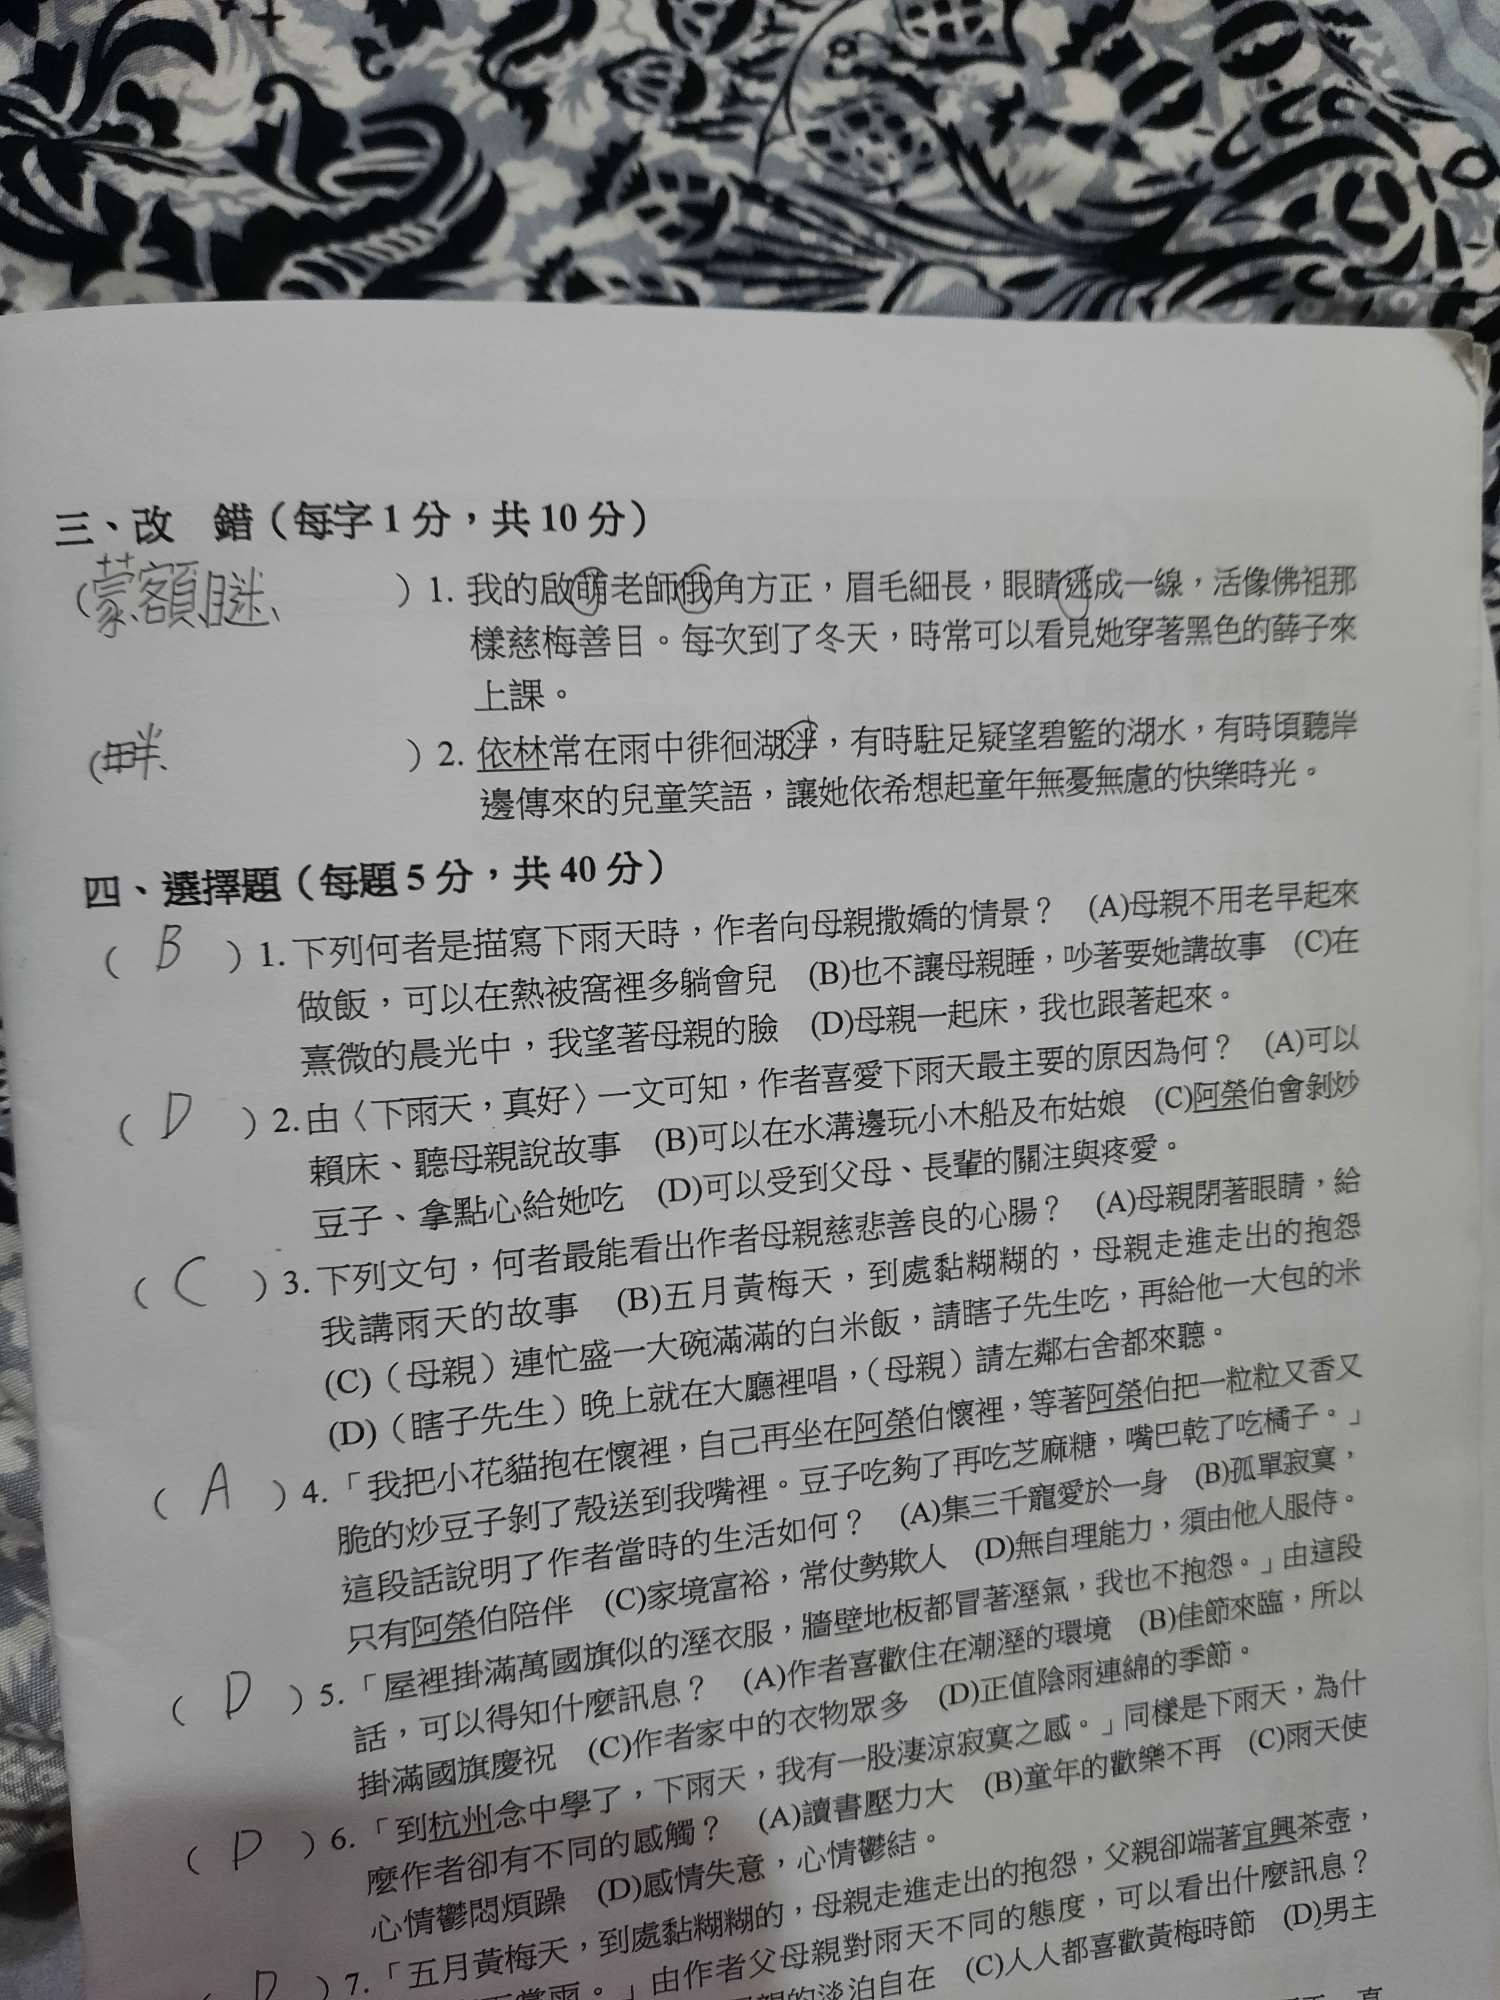 三、改　錯（每字1分，共10分）
（蒙、額、瞇、　）1. 我的啟萌老師俄角方正，眉毛細長，眼睛迷成一線，活像佛祖那
樣慈梅善目。每次到了冬天，時常可以看見她穿著黑色的薛子來
上課。
（畔、　）2. 依林常在雨中徘徊湖泮，有時駐足疑望碧籃的湖水，有時頃聽岸
邊傳來的兒童笑語，讓她依希想起童年無憂無慮的快樂時光。
四、選擇題（每題5分，共40分）
（ B ）1. 下列何者是描寫下雨天時，作者向母親撒嬌的情景？　(A)母親不用老早起來
做飯，可以在熱被窩裡多躺會兒　(B)也不讓母親睡，吵著要她講故事　(C)在
熹微的晨光中，我望著母親的臉　(D)母親一起床，我也跟著起來。
（ D ）2. 由〈下雨天，真好〉一文可知，作者喜愛下雨天最主要的原因為何？　(A)可以
賴床、聽母親說故事　(B)可以在水溝邊玩小木船及布姑娘　(C)阿榮伯會剝炒
豆子、拿點心給她吃　(D)可以受到父母、長輩的關注與疼愛。
（ C ）3. 下列文句，何者最能看出作者母親慈悲善良的心腸？　(A)母親閉著眼睛，給
我講雨天的故事　(B)五月黃梅天，到處黏糊糊的，母親走進走出的抱怨
(C)（母親）連忙盛一大碗滿滿的白米飯，請瞎子先生吃，再給他一大包的米
(D)（瞎子先生）晚上就在大廳裡唱，（母親）請左鄰右舍都來聽。
（ A ）4. 「我把小花貓抱在懷裡，自己再坐在阿榮伯懷裡，等著阿榮伯把一粒粒又香又
脆的炒豆子剝了殼送到我嘴裡。豆子吃夠了再吃芝麻糖，嘴巴乾了吃橘子。」
這段話說明了作者當時的生活如何？　(A)集三千寵愛於一身　(B)孤單寂寞，
只有阿榮伯陪伴　(C)家境富裕，常仗勢欺人　(D)無自理能力，須由他人服侍。
（ D ）5. 「屋裡掛滿萬國旗似的溼衣服，牆壁地板都冒著溼氣，我也不抱怨。」由這段
話，可以得知什麼訊息？　(A)作者喜歡住在潮溼的環境　(B)佳節來臨，所以
掛滿國旗慶祝　(C)作者家中的衣物眾多　(D)正值陰雨連綿的季節。
（ D ）6. 「到杭州念中學了，下雨天，我有一股淒涼寂寞之感。」同樣是下雨天，為什
麼作者卻有不同的感觸？　(A)讀書壓力大　(B)童年的歡樂不再　(C)雨天使
心情鬱悶煩躁　(D)感情失意，心情鬱結。
（ D ）7. 「五月黃梅天，到處黏糊糊的，母親走進走出的抱怨，父親卻端著宜興茶壺，
賞雨。」由作者父母親對雨天不同的態度，可以看出什麼訊息？
親的淡泊自在　(C)人人都喜歡黃梅時節　(D)男主